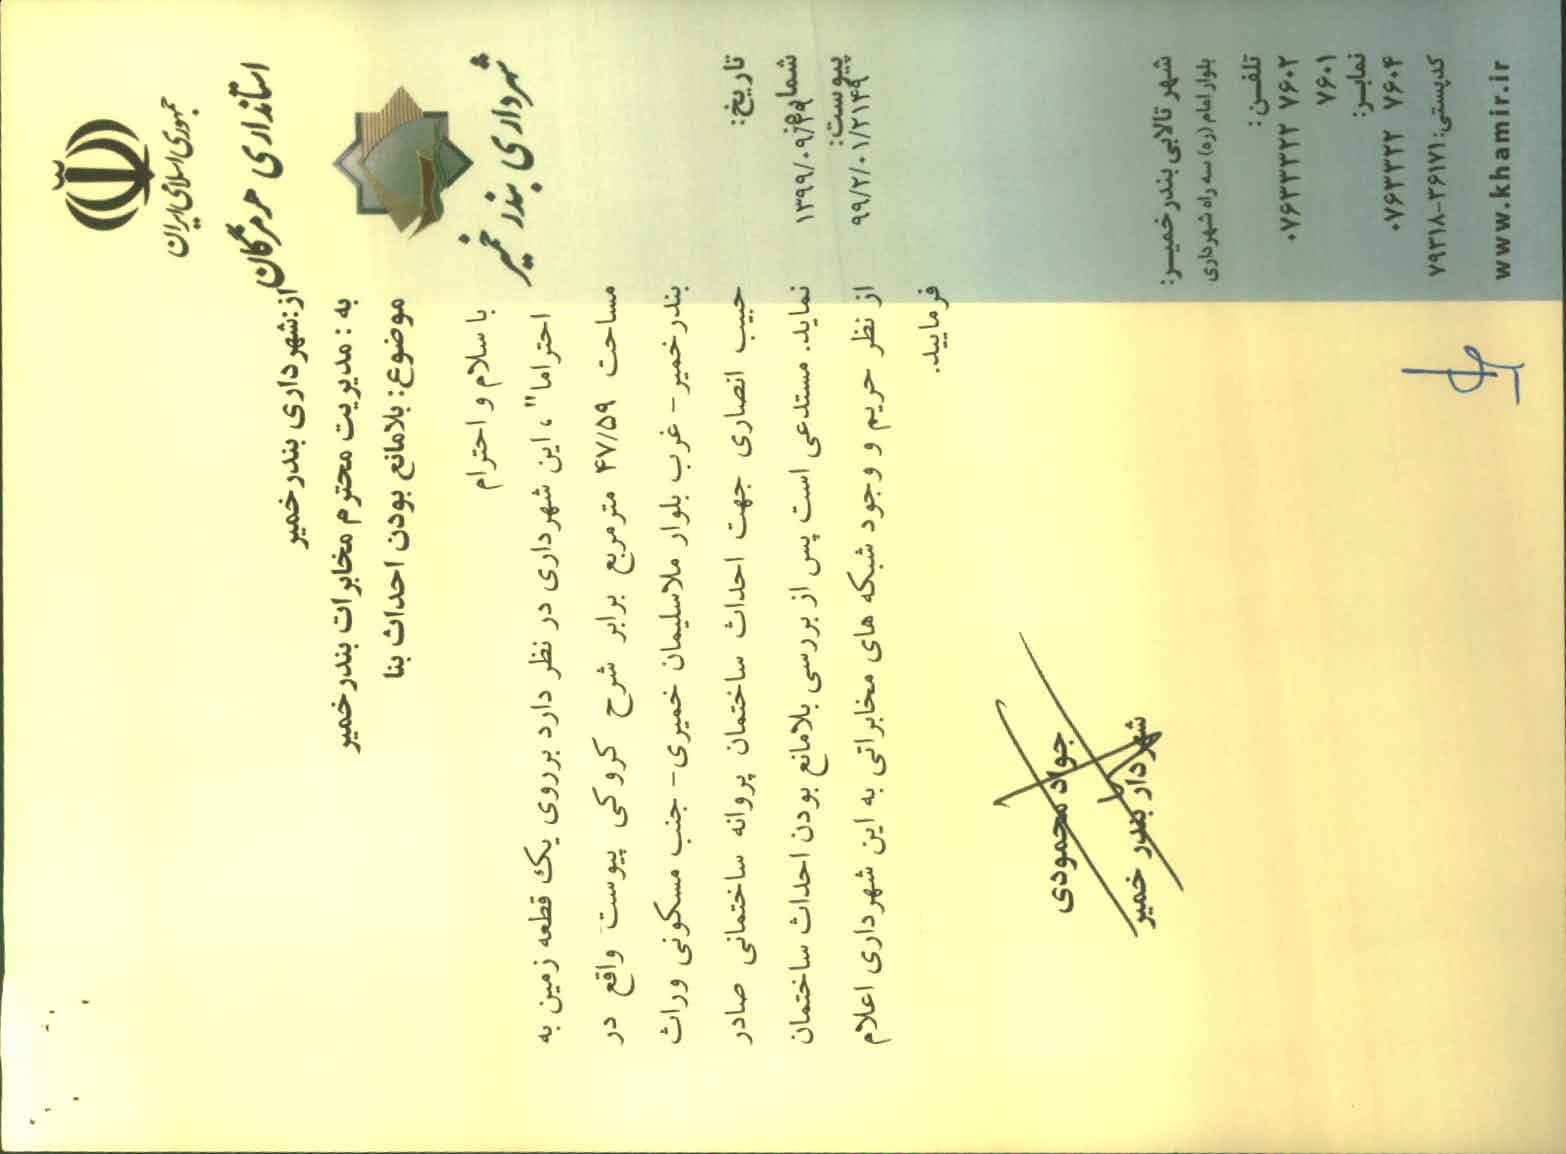 جمهوری اسلامی ایران
استانداری هرمزگان
شهرداری بندر خمیر
تاریخ:
شماره:
۱۳۹۹/۰۹/
پیوست:
۹۹/۲/۰۱/۲۱۴۹
شهر تالابی بندر خمیـر:
بلوار امام (ره) سه راه شهرداری
تلفـن:
۰۷۶۳۳۳۲۲ ۷۶۰۲
۷۶۰۱
نمابـر:
۰۷۶۳۳۳۲۲ ۷۶۰۴
کدپستی: ۷۹۳۱۸-۳۶۱۷۱
www.khamir.ir
از:شهرداری بندر خمیر
به : مدیریت محترم مخابرات بندر خمیر
موضوع: بلامانع بودن احداث بنا
با سلام و احترام
احتراما" ، این شهرداری در نظر دارد برروی یک قطعه زمین به
مساحت ۴۷/۵۹ مترمربع برابر شرح کروکی پیوست واقع در
بندرخمیر- غرب بلوار ملاسلیمان خمیری- جنب مسکونی وراث
حبیب انصاری جهت احداث ساختمان پروانه ساختمانی صادر
نماید. مستدعی است پس از بررسی بلامانع بودن احداث ساختمان
از نظر حریم و وجود شبکه های مخابراتی به این شهرداری اعلام
فرمایید.
جواد محمودی
شهردار بندر خمیر